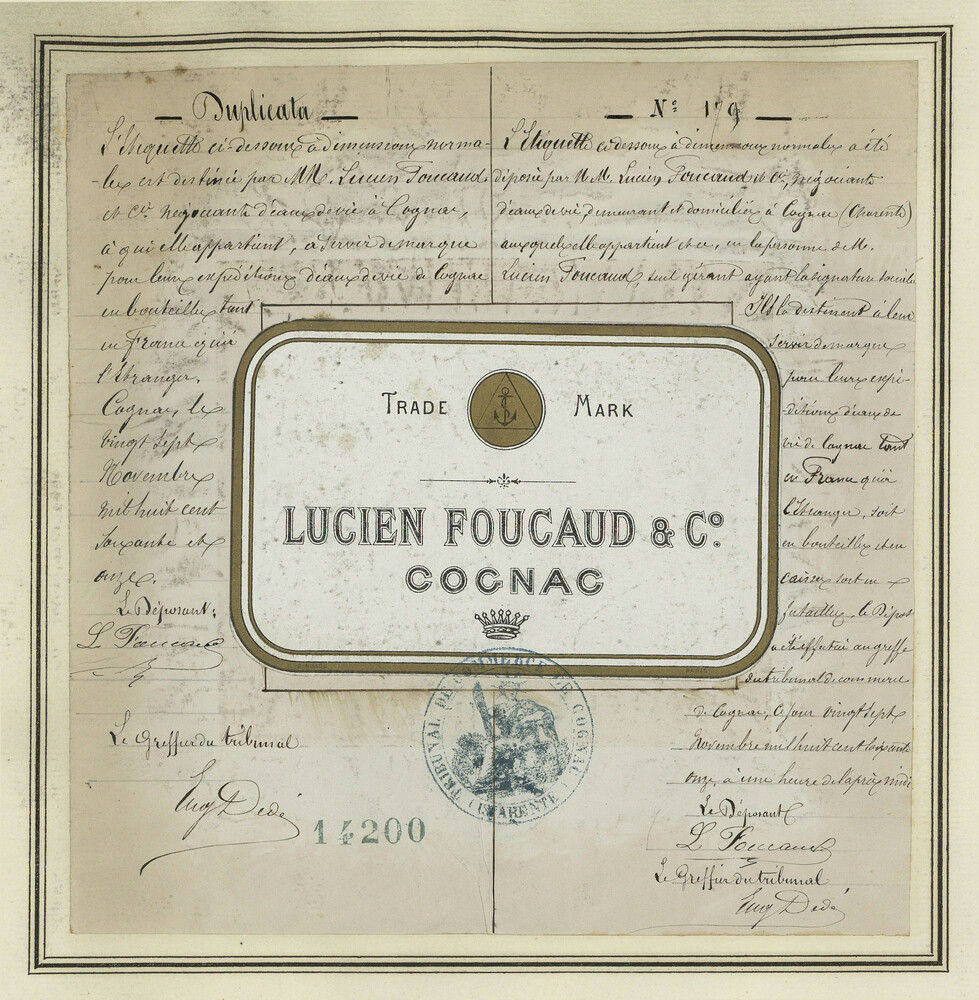 Duplicata
L'Etiquette ci-dessous à dimensions norma-
-les est destinée par MM. Lucien Foucaud
et Cie négociants d'eaux de vie à Cognac,
à qui elle appartient, à servir de marque
pour leurs expéditions d'eaux de vie de Cognac
en bouteilles tant
en France qu'à
l'Etranger.
Cognac, le
vingt sept
Novembre
mil huit cent
soixante et
onze.
Le Déposant:
L Foucaud
Le Greffier du tribunal
Eug Dedé
14200
No 179
L'Etiquette ci dessous à dimensions normales a été
déposée par M.M. Lucien Foucaud et Cie, négociants
d'eaux de vie, demeurant et domiciliés à Cognac (Charente)
auxquels elle appartient et ce, en la personne de M.
Lucien Foucaud, seul gérant ayant la signature sociale
Ils la destinent à leur
servir de marque
pour leurs expé-
-ditions d'eaux de
vie de Cognac tant
en France qu'à
l'Etranger, soit
en bouteilles et en
caisses soit en
futailles. le Dépôt
a été effectué au greffe
du tribunal de commerce
de Cognac, ce jour vingt sept
Novembre mil huit cent soixante
onze, à une heure de l'après midi
Le Déposant
L Foucaud
Le Greffier du tribunal
Eug Dedé
TRADE MARK
LUCIEN FOUCAUD & Co.
COGNAC
TRIBUNAL DE COMMERCE DE COGNAC
(CHARENTE)